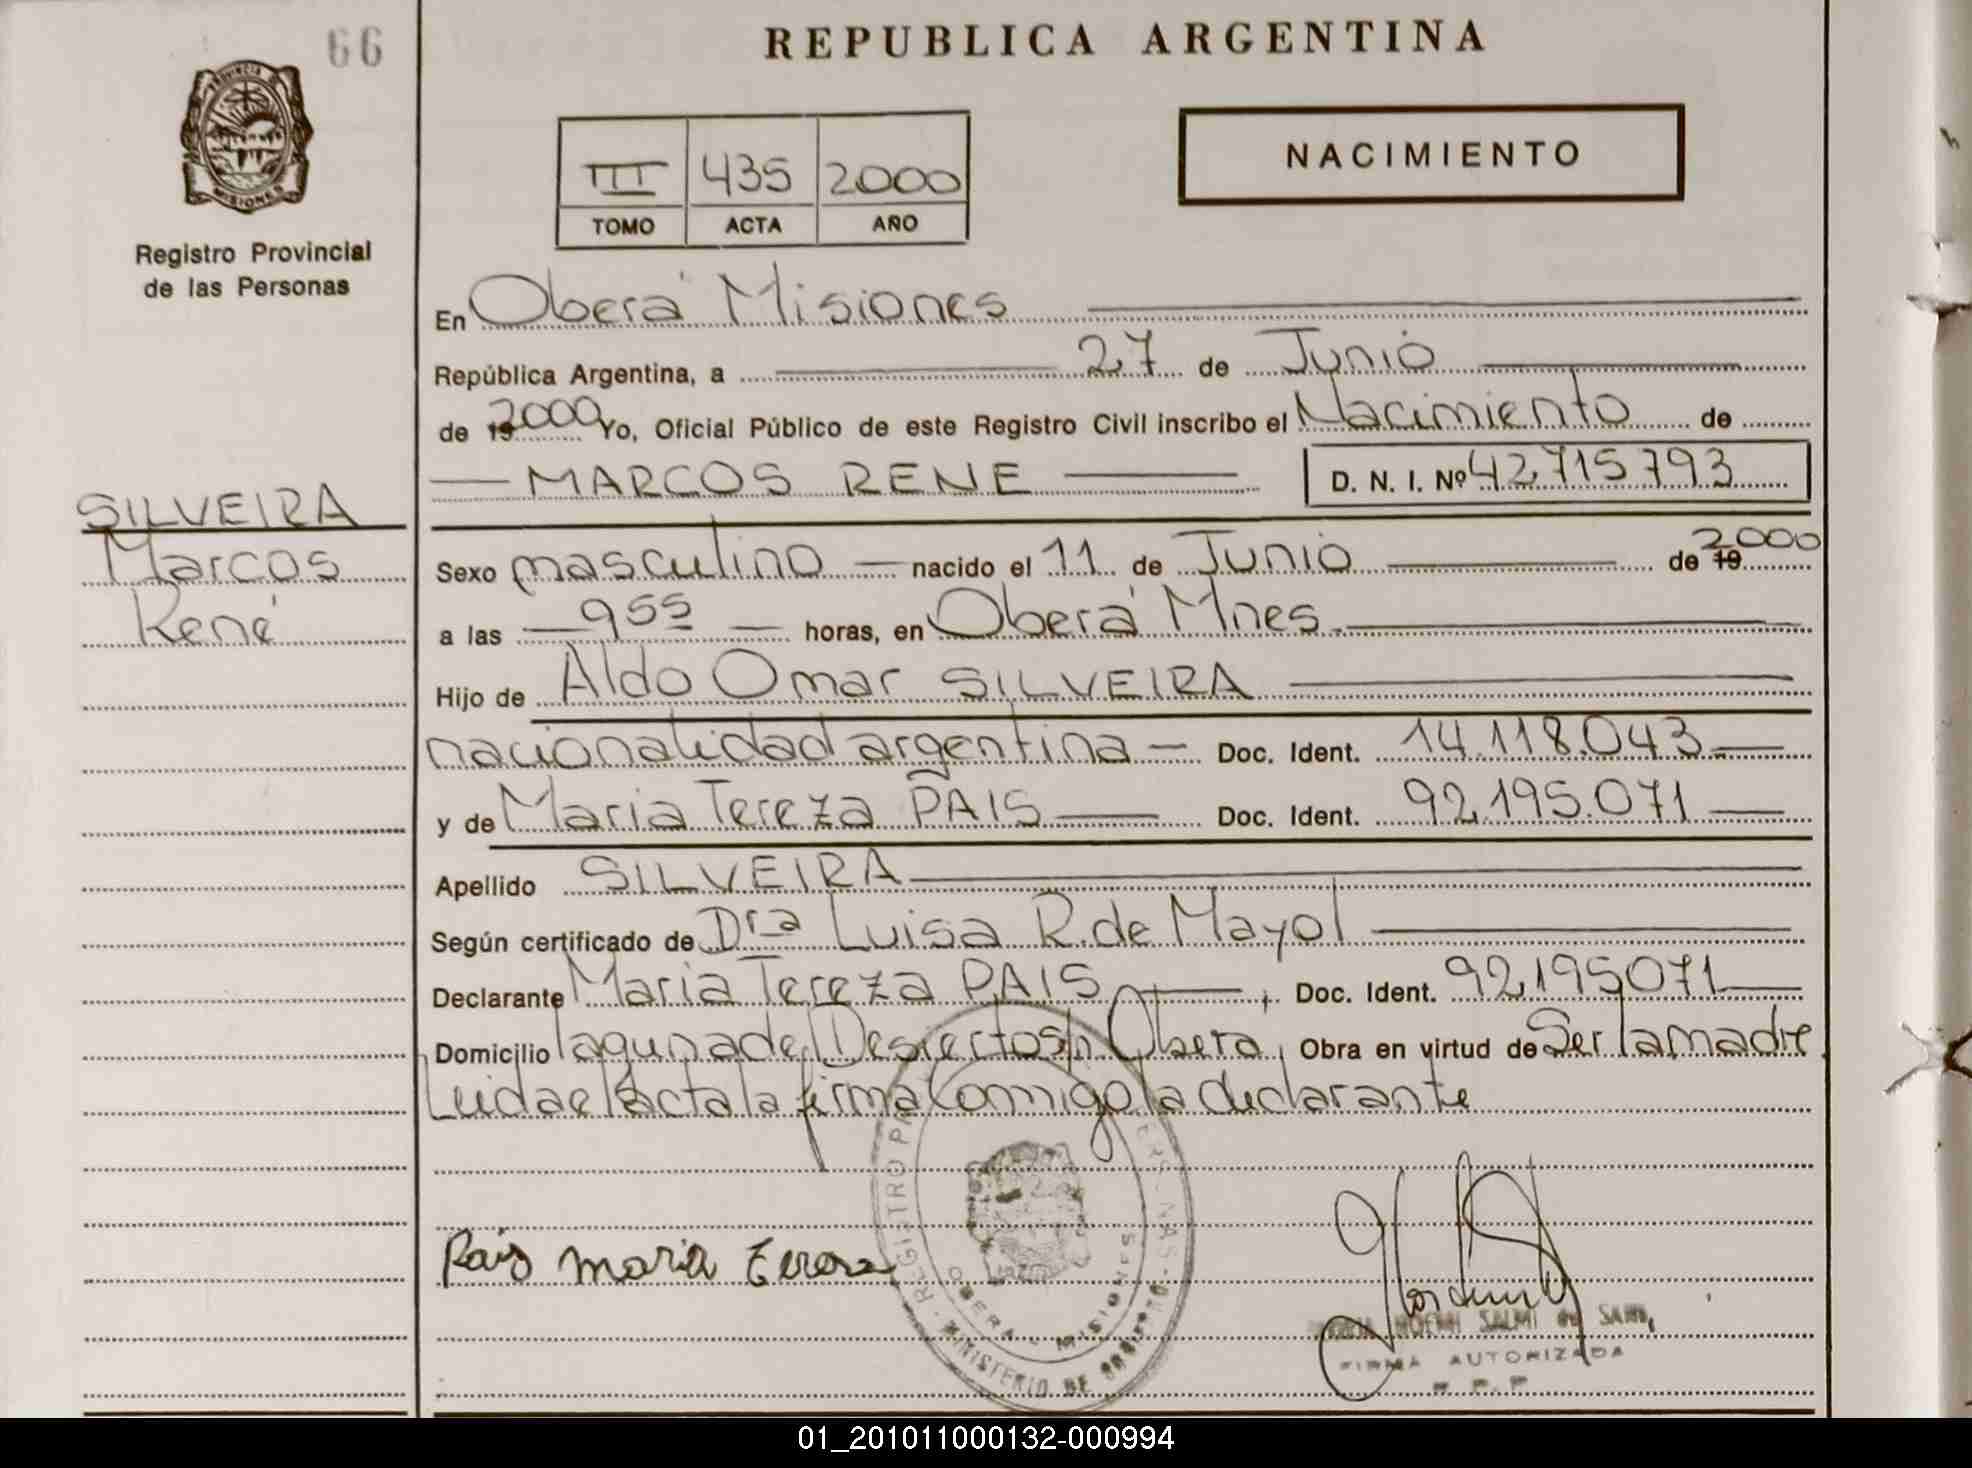 66
REPUBLICA ARGENTINA
PROVINCIA D
MISIONES
Registro Provincial
de las Personas
III 435 2000
TOMO ACTA AÑO
NACIMIENTO
En Oberá Misiones
República Argentina, a 27 de Junio
de 19 2000 Yo, Oficial Público de este Registro Civil inscribo el Nacimiento de
MARCOS RENE D. N. I. Nº 42715793
SILVEIRA
Marcos
René
Sexo masculino nacido el 11 de Junio de 19 2000
a las 9 55 horas, en Oberá Mnes.
Hijo de Aldo Omar SILVEIRA
nacionalidad argentina Doc. Ident. 14.118.043
y de Maria Tereza PAIS Doc. Ident. 92.195.071
Apellido SILVEIRA
Según certificado de Dra Luisa R. de Mayol
Declarante Maria Tereza PAIS, Doc. Ident. 92195071
Domicilio laguna del Desierto s/n Oberá, Obra en virtud de Ser la madre
Leida el Acta la firma Comigo la declarante
Pais maria Tereza
REGISTRO
OBERA - MISIONES
MINISTERIO DE GOBIERNO
NOEMI SALMI de
FIRMA AUTORIZADA
01_201011000132-000994